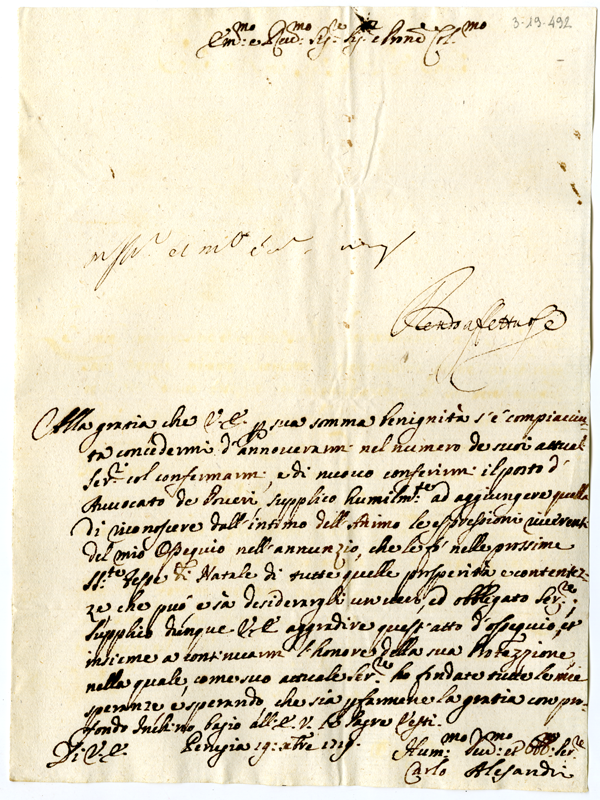 3-19-492
Em:mo e Rev:mo Sig:re Sig:re e Prone Col:mo
Rendo affettuose
Alla gratia che V.E. p sua somma benignità s'è compiaciu-
ta concedermi d'annoverarmi nel numero de suoi attual
Ser:ri col confermarmi, e di nuovo conferirmi il posto d'
Avvocato de Poveri, supplico humilm:te ad aggiungere quella
di riconoscere dall'intimo dell'Animo le espressioni riverenti
del mio Ossequio nell'annunzio, che le fò nelle prossime
SS:te Feste di Natale di tutte quelle prosperità e contentez-
ze che può e sà desiderargli un vero, ed obbligato Ser:re
Supplico dunque V.E. aggradire quest'atto d'ossequio, et
insieme a continuarmi l'honore della sua Protezzione
nella quale, come suo attuale Ser:re ho fondate tutte le mie
speranze e sperando, che sia p farmene la gratia con pro-
fondo Inchino bagio all'E.V. le Sagre Vesti.
Di V.E. Perugia 19: xbre 1719.
Hum:mo Dev:mo et Obb:mo Ser:re
Carlo Alesandri